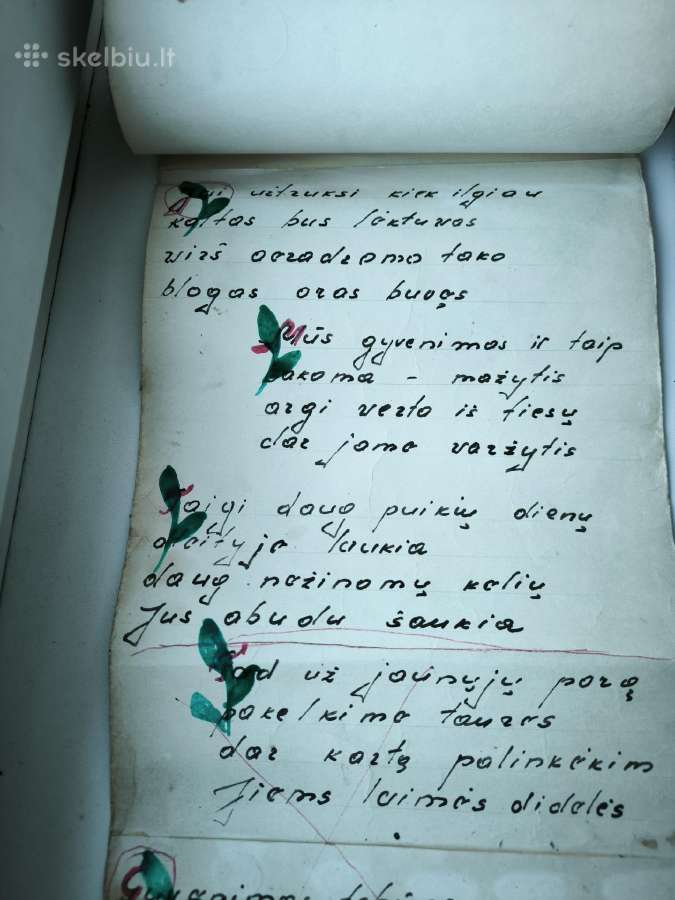 skelbiu.lt
užtruksi kiek ilgiau
kaltas bus lėktuvas
virš aeradromo tako
blogas oras buvęs
Mūs gyvenimas ir taip
sakoma - mažytis
argi verta iš tiesų
dar jame varžytis
Taigi daug puikių dienų
ateityje laukia
daug nežinomų kelių
Jus abudu šaukia
Tad už jaunųjų porą
pakelkime taures
dar kartą palinkėkim
Jiems laimės didelės